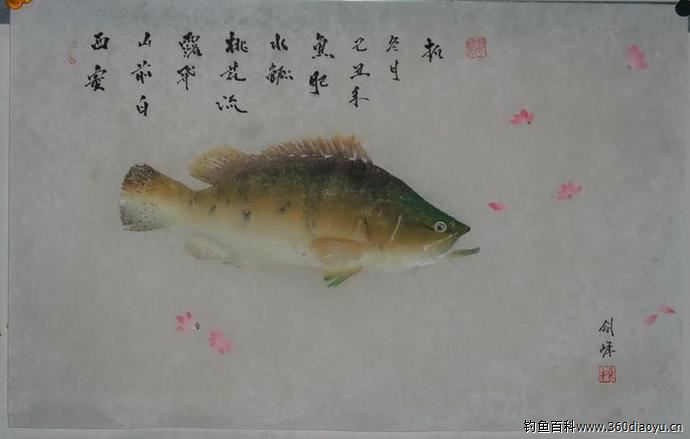 西塞
山前白
鹭飛
桃花流
水鳜
魚肥
己丑年
冬月
拓
剑
钓鱼百科www.360diaoyu.cn